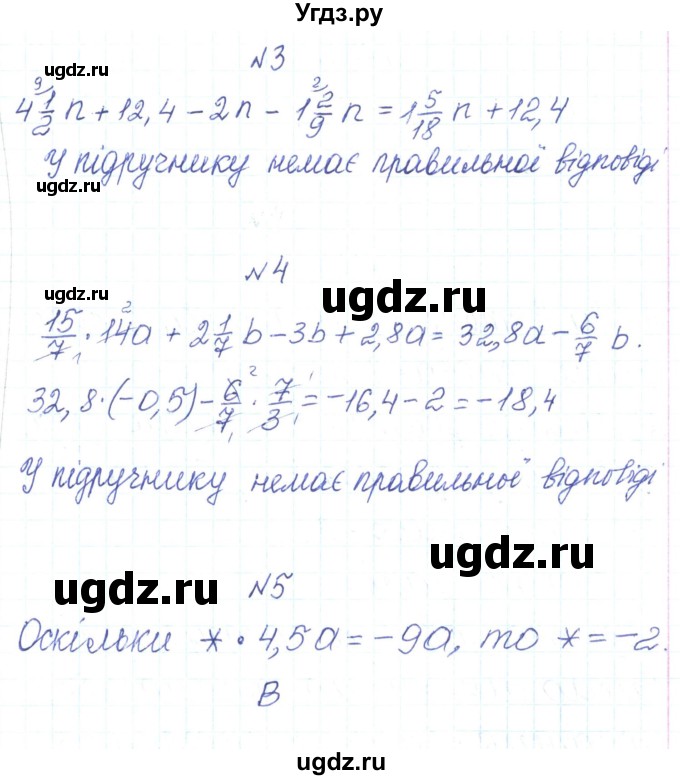 Угдз.ру
ugdz.ru
№3
4 1/2 n + 12,4 - 2n - 1 2/9 n = 1 5/18 n + 12,4
ugdz.ru
У підручнику немає правильної відповіді
ugdz.ru
№4
ugdz.ru
ugdz.ru
15/7 · 14a + 2 1/7 b - 3b + 2,8a = 32,8a - 6/7 b.
32,8 · (-0,5) - 6/7 · 7/3 = -16,4 - 2 = -18,4
У підручнику немає правильної відповіді
ugdz.ru
ugdz.ru
№5
Оскільки * · 4,5a = -9a, то * = -2.
ugdz.ru
В
ugdz.ru